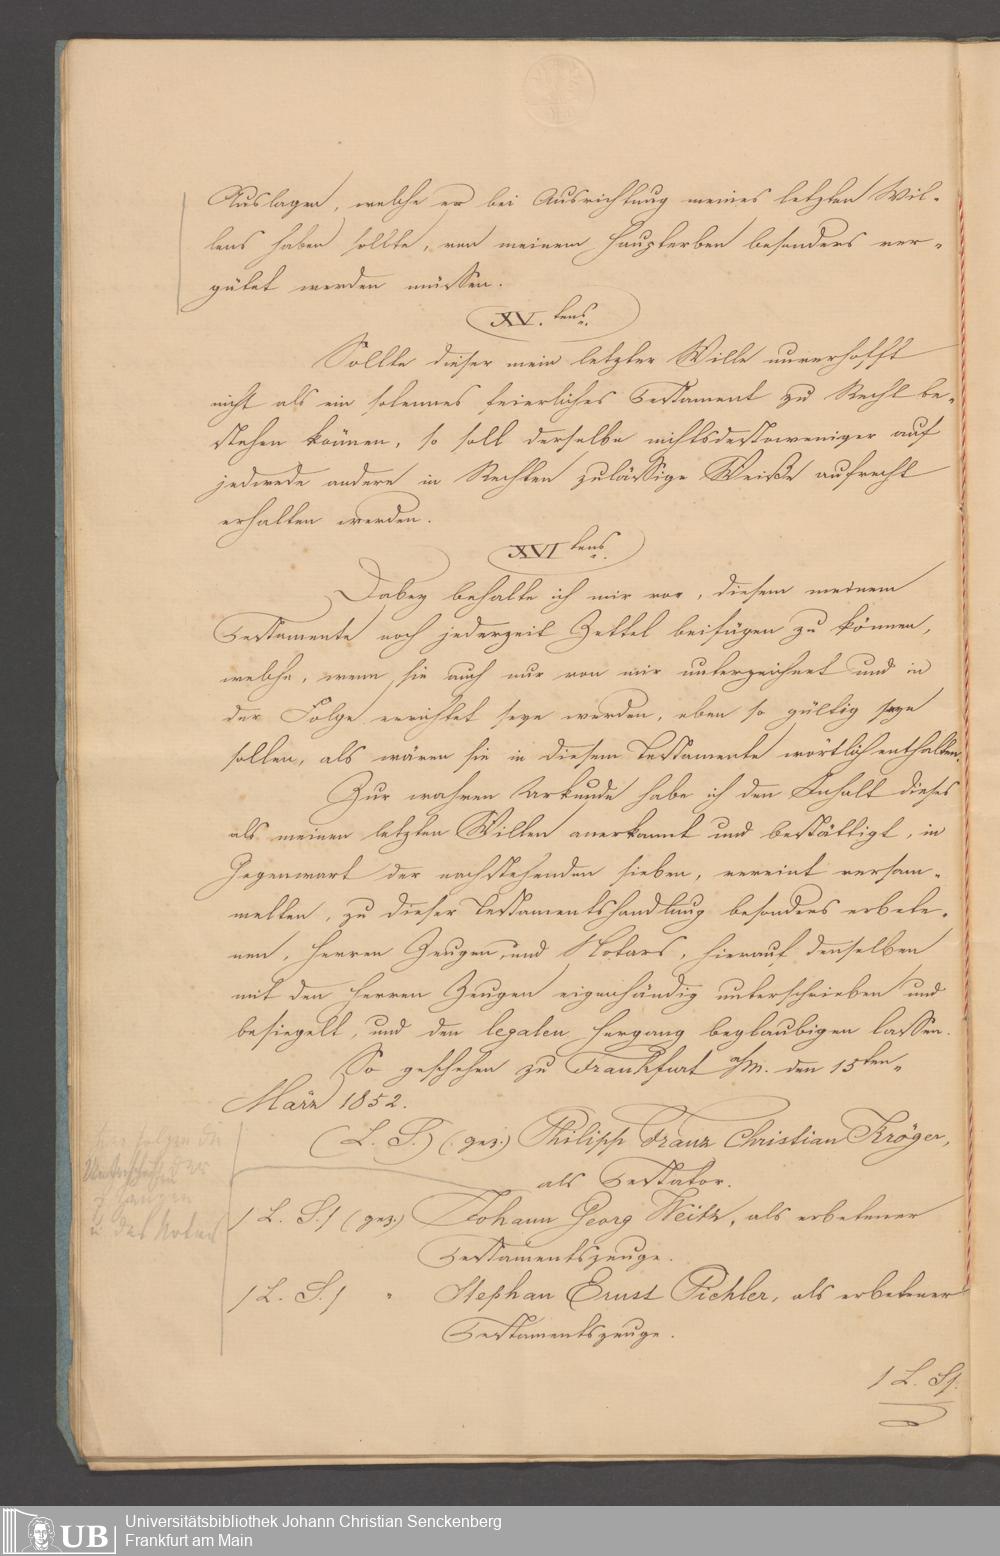 Auslagen, welche er bei Ausrichtung meines letzten Wil-
lens haben sollte, von meinem Haupterben besonders ver-
gütet werden müssen.
XV. tens.
Sollte dieser mein letzter Wille unverhofft
nicht als ein solennes feierliches Testament zu Recht be-
stehen können, so soll derselbe nichtsdestoweniger auf
jedwede andere in Rechten zulässige Weiße aufrecht
erhalten werden.
XVI tens.
Dabey behalte ich mir vor, diesem meinem
Testamente noch jederzeit Zettel beifügen zu können,
welche, wenn sie auch nur von mir unterzeichnet und in
der Folge errichtet seyn werden, eben so gültig seyn
sollen, als wären sie in diesem Testamente wörtlich enthalten.
Zur wahren Urkunde habe ich den Inhalt dieses
als meinen letzten Willen anerkannt und bestättigt, in
Gegenwart der nachstehenden sieben, vereint versam-
melten, zu dieser Testamentshandlung besonders erbete-
nen, Herren Zeugen und Notars, hierauf denselben
mit den Herren Zeugen eigenhändig unterschrieben und
besiegelt, und den legalen Hergang beglaubigen lassen.
So geschehen zu Frankfurt a/m. den 15ten
März 1852.
hier folgen die
Unterschriften der
7 Zeugen
u des Notars
(L. S.) (gez.) Philipp Franz Christian Kröger,
als Testator.
/ L. S./ (gez.) Johann Georg Weitz, als erbetener
Testamentszeuge.
/ L. S. / " Stephan Ernst Pichler, als erbetener
Testamentszeuge.
/ L. S/.
UB
Universitätsbibliothek Johann Christian Senckenberg
Frankfurt am Main